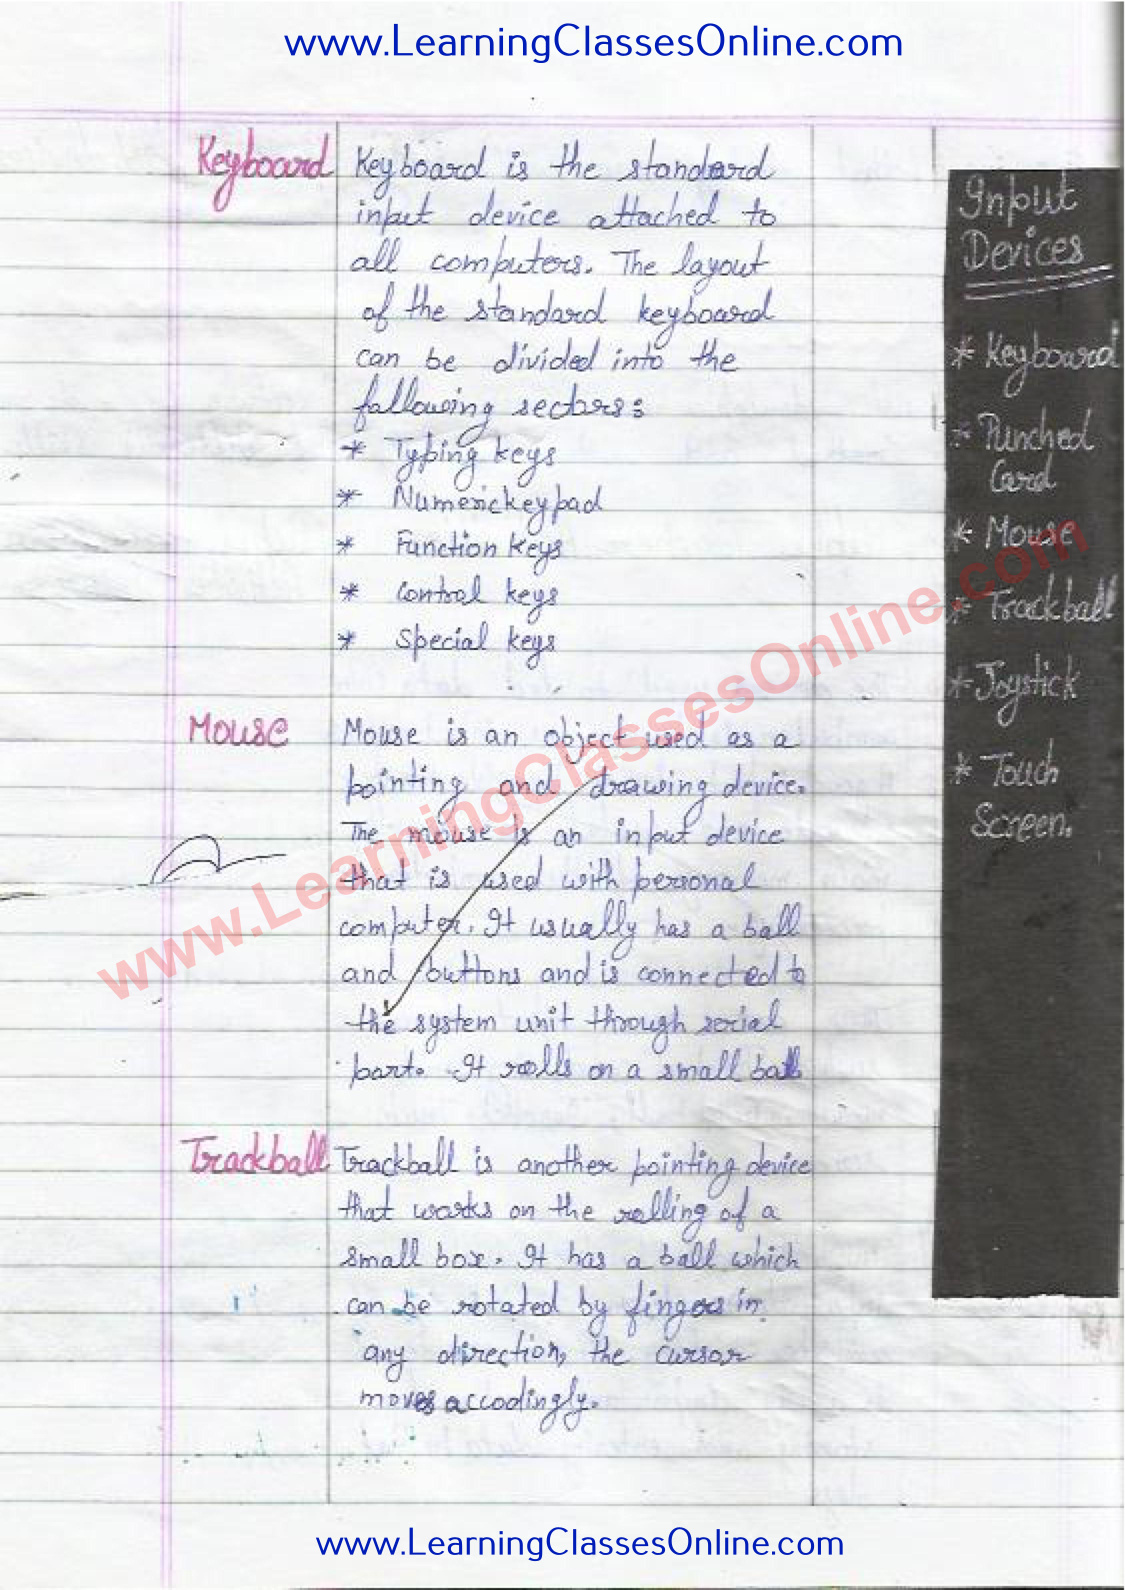 www.LearningClassesOnline.com
Keyboard
Keyboard is the standard
input device attached to
all computers. The layout
of the standard keyboard
can be divided into the
following sectors:
* Typing keys
* Numerickeypad
* Function keys
* Control keys
* Special keys
Mouse
Mouse is an object used as a
pointing and drawing device.
The mouse is an input device
that is used with personal
computer. It usually has a ball
and buttons and is connected to
the system unit through serial
part. It rolls on a small ball
Trackball
Trackball is another pointing device
that works on the rolling of a
small box. It has a ball which
can be rotated by fingers in
any direction, the cursor
moves accodingly.
Input
Devices
* Keyboard
* Punched
Card
* Mouse
* Trackball
* Joystick
* Touch
Screen.
www.LearningClassesOnline.com
www.LearningClassesOnline.com